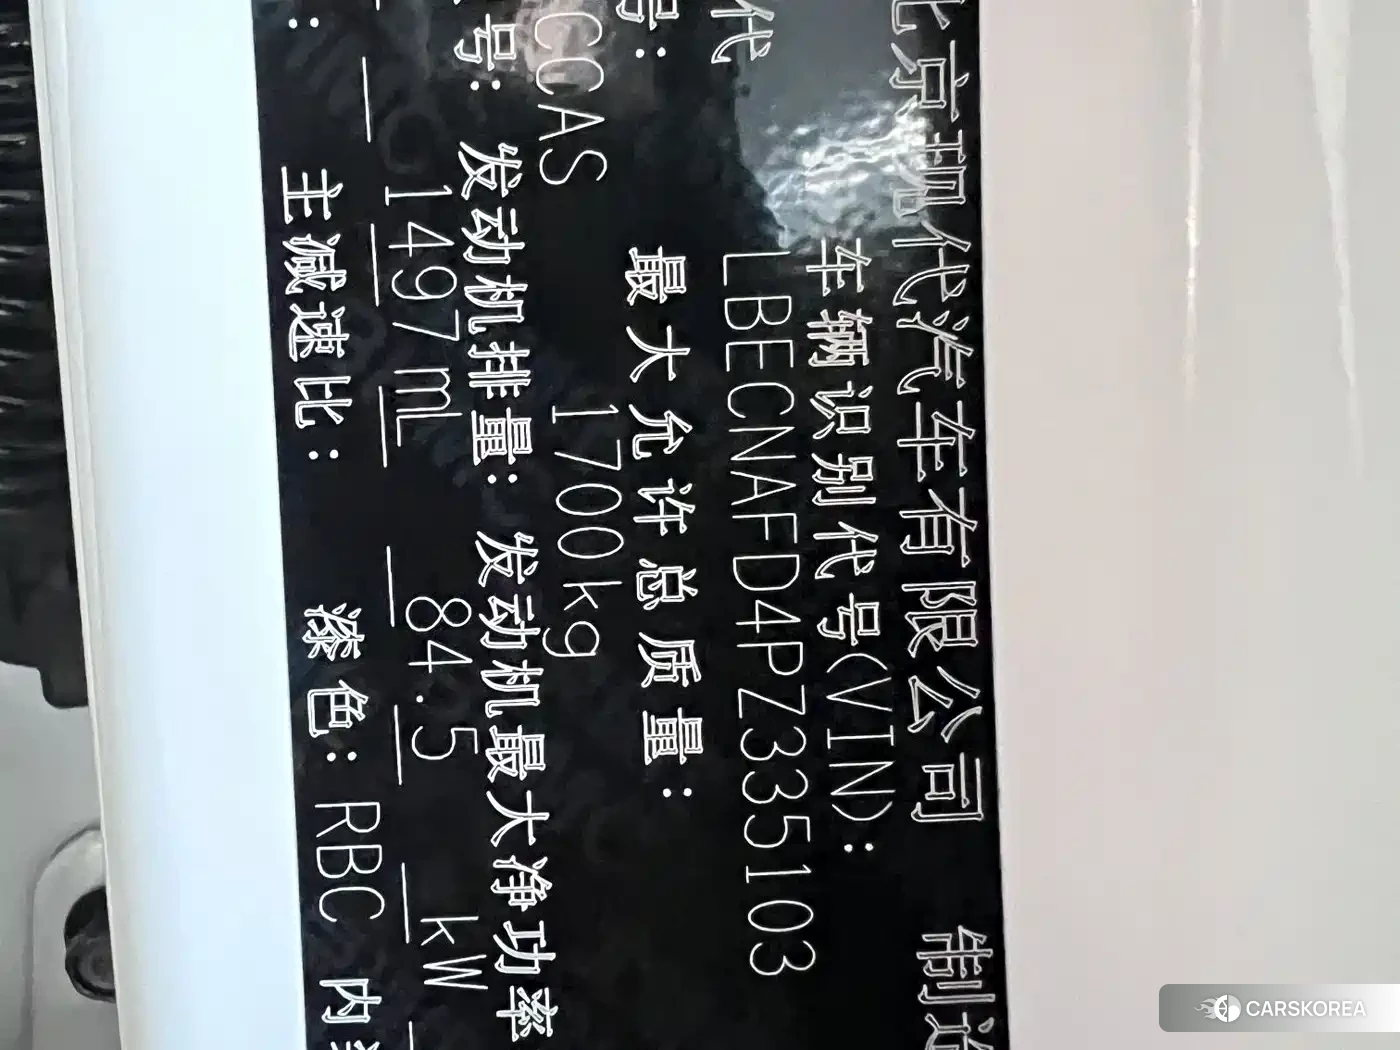 北京现代汽车有限公司 制造
代 车辆识别代号(VIN):
LBECNAFD4PZ335103
号: 最大允许总质量:
CCAS 1700kg
号: 发动机排量: 发动机最大净功率
1497mL 84.5 kW
: 主减速比: 漆色: RBC 内
CARSKOREA